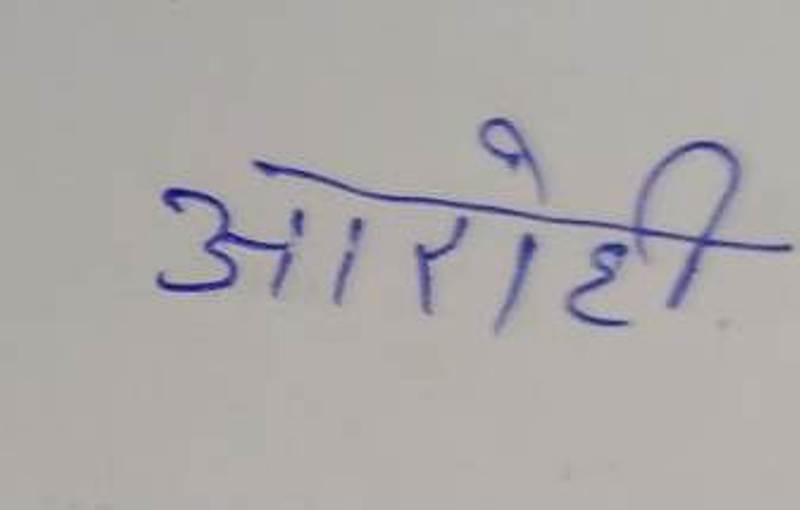 आरोही